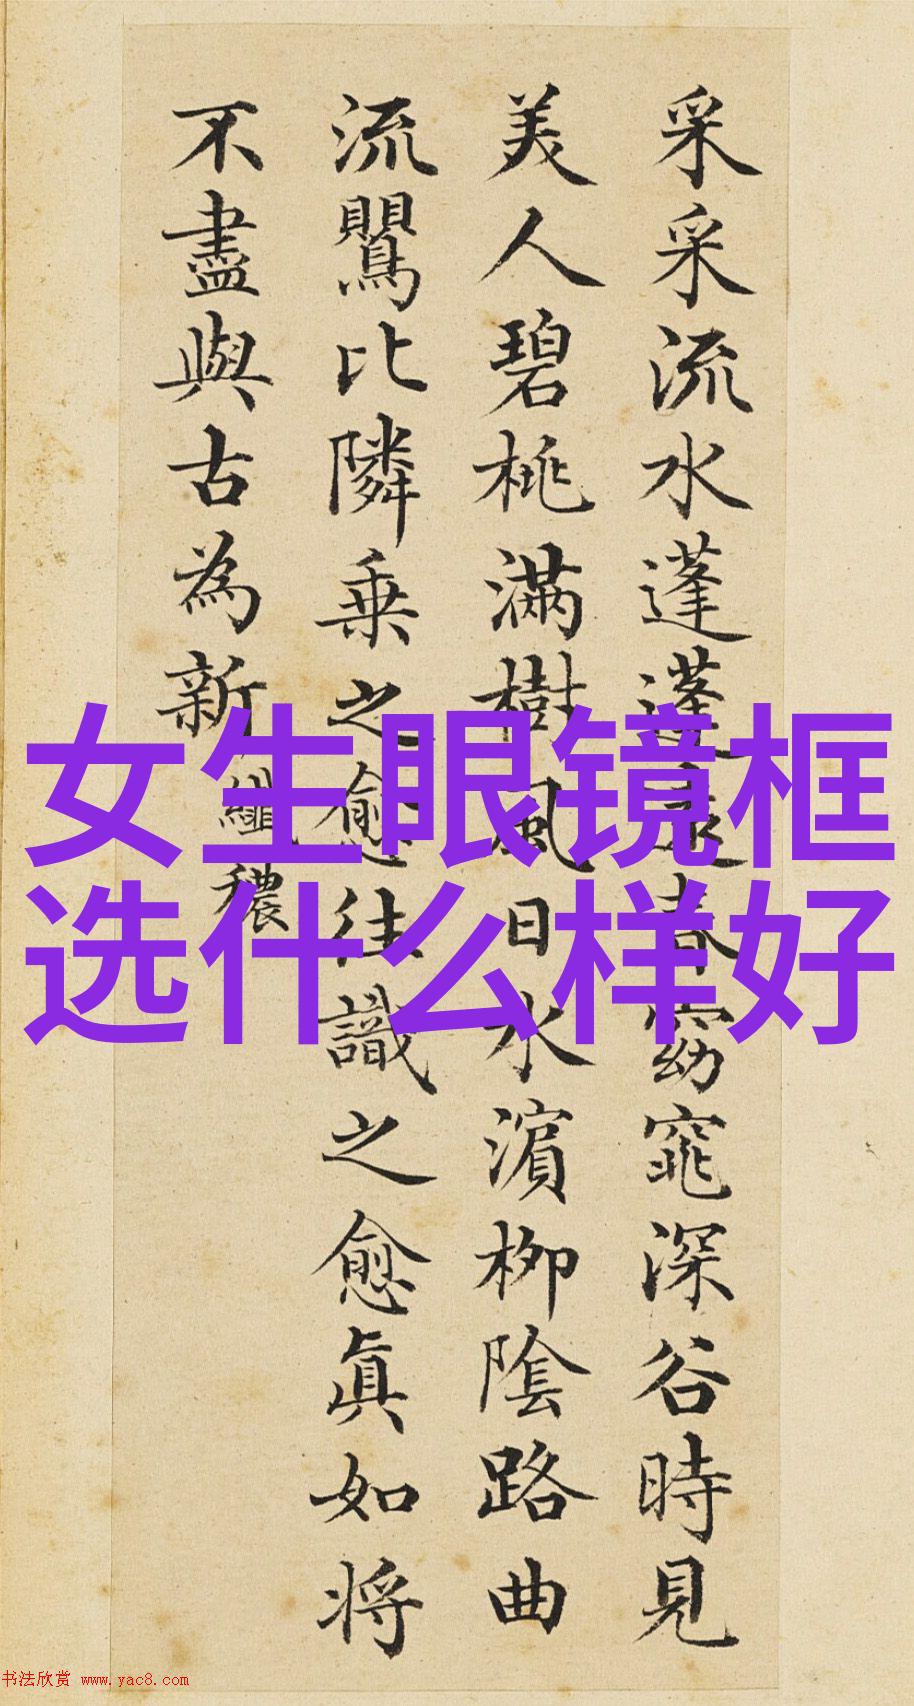 采采流水蓬蓬遠春窈窕深谷時見
美人碧桃滿樹風日水濵柳陰路曲
流鸎比隣乗之愈往識之愈真如将
不盡與古為新 纖穠
女生眼镜框
选什么样好
书法欣赏 www.yac8.com